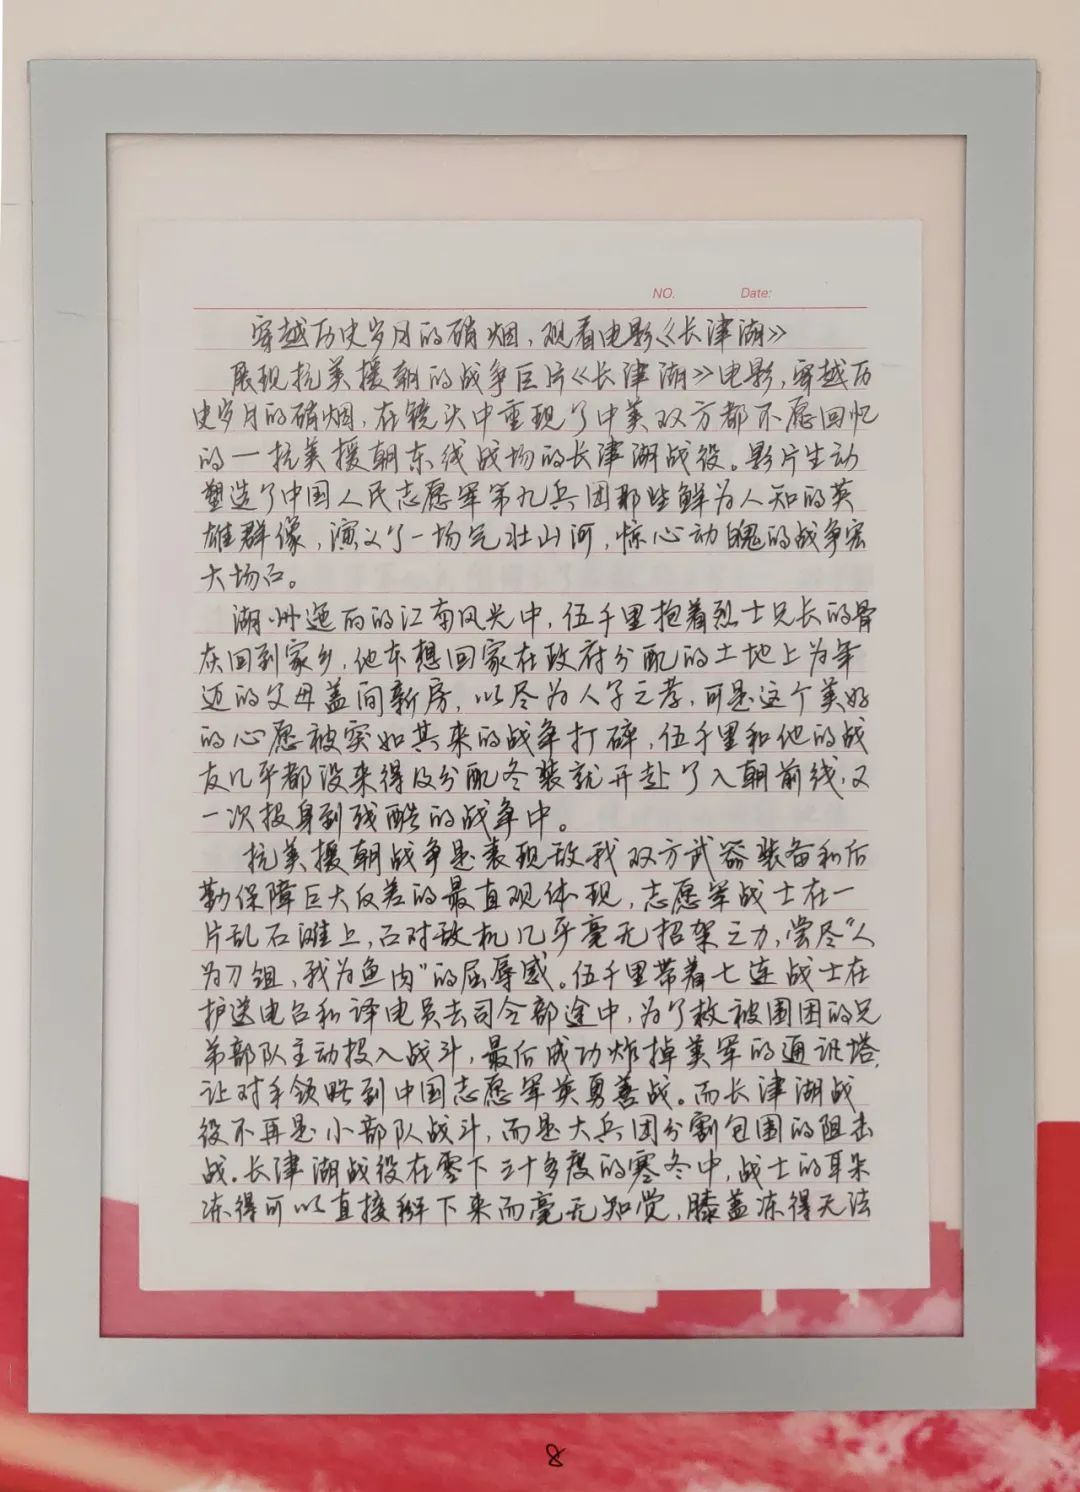 NO. Date:
穿越历史岁月的硝烟，观看电影《长津湖》
展现抗美援朝的战争巨片《长津湖》电影，穿越历
史岁月的硝烟，在镜头中重现了中美双方都不愿回忆
的一抗美援朝东线战场的长津湖战役。影片生动
塑造了中国人民志愿军第九兵团那些鲜为人知的英
雄群像，演义了一场气壮山河，惊心动魄的战争宏
大场面。
湖州迤丽的江南风光中，伍千里抱着烈士兄长的骨
灰回到家乡，他本想回家在政府分配的土地上为年
迈的父母盖间新房，以尽为人子之孝，可是这个美好
的心愿被突如其来的战争打碎，伍千里和他的战
友几乎都没来得及分配冬装就开赴了入朝前线，又
一次投身到残酷的战争中。
抗美援朝战争是表现敌我双方武器装备和后
勤保障巨大反差的最直观体现，志愿军战士在一
片乱石滩上，面对敌机几乎毫无招架之力，尝尽“人
为刀俎，我为鱼肉”的屈辱感。伍千里带着七连战士在
护送电台和译电员去司令部途中，为了救被围困的兄
弟部队主动投入战斗，最后成功炸掉美军的通讯塔，
让对手领略到中国志愿军英勇善战。而长津湖战
役不再是小部队战斗，而是大兵团分割包围的阻击
战。长津湖战役在零下三十多度的寒冬中，战士的耳朵
冻得可以直接掰下来而毫无知觉，膝盖冻得无法
8